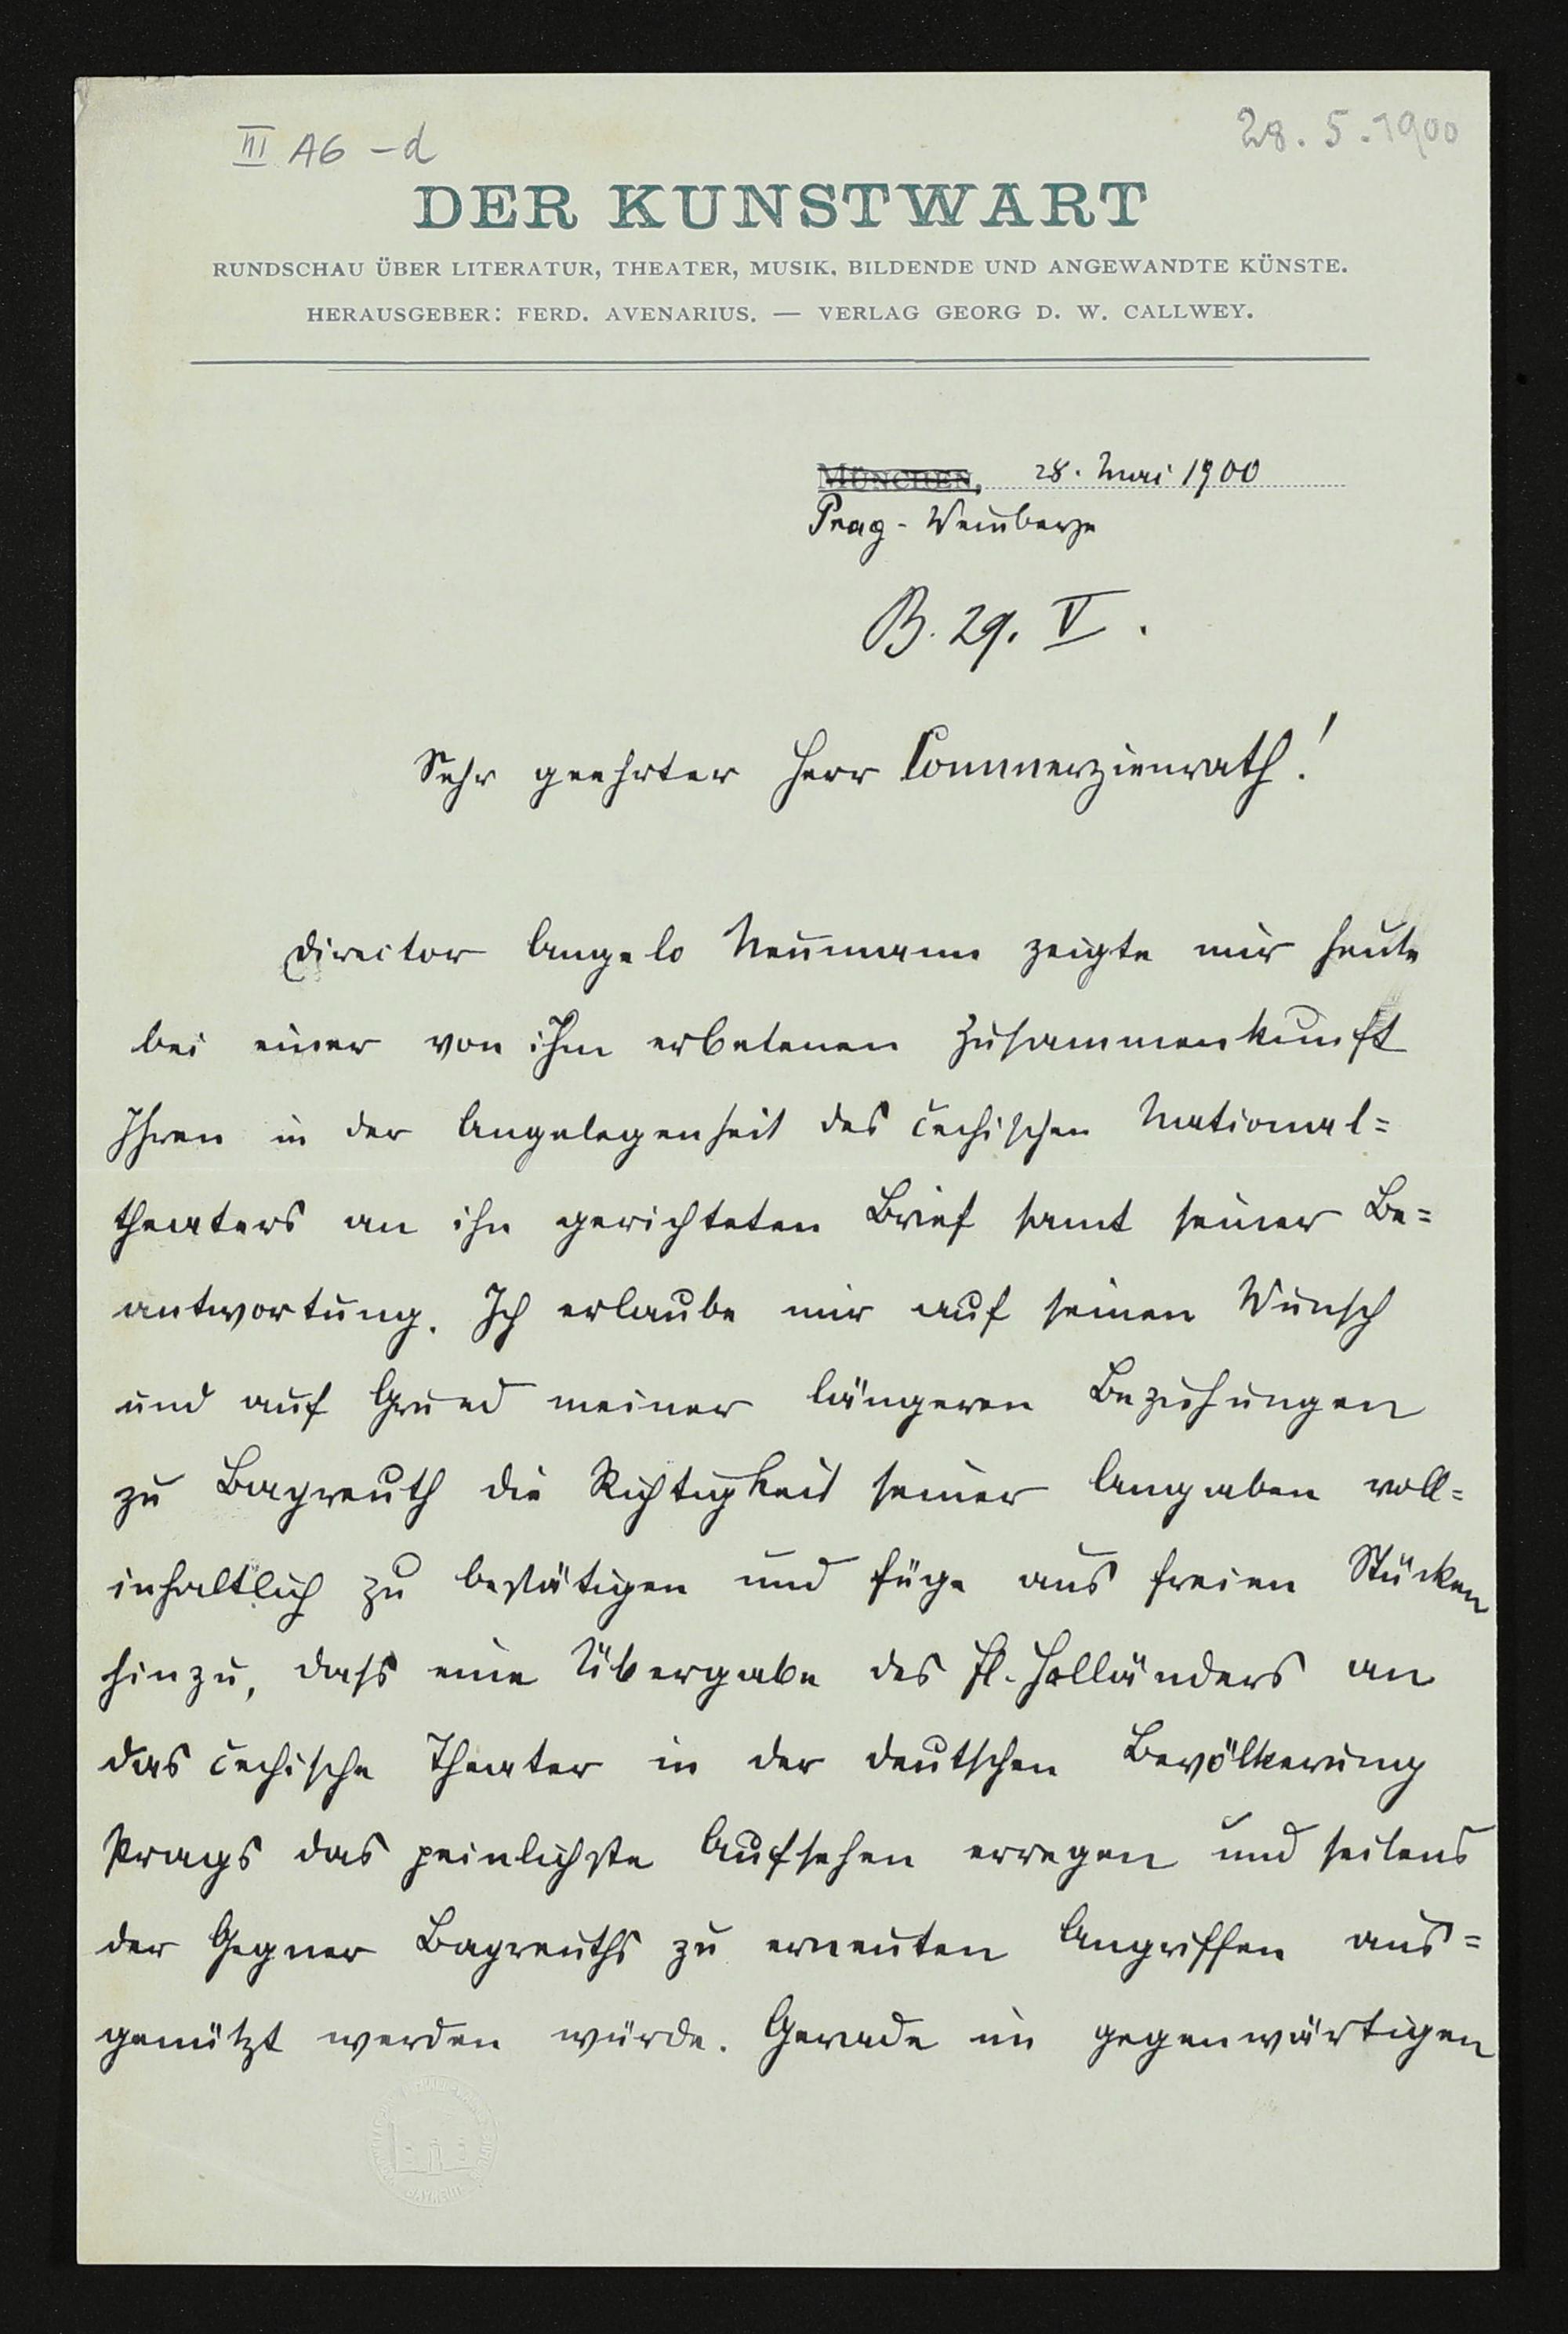 III A6 - d
28. 5. 1900
DER KUNSTWART
RUNDSCHAU ÜBER LITERATUR, THEATER, MUSIK, BILDENDE UND ANGEWANDTE KÜNSTE.
HERAUSGEBER: FERD. AVENARIUS. — VERLAG GEORG D. W. CALLWEY.
MÜNCHEN, 28. Mai 1900
Prag - Weinberge
B. 29. V.
Sehr geehrter Herr Commerzienrath!
Director Angelo Neumann zeigte mir heute
bei einer von ihm erbetenen Zusammenkunft
Ihren in der Angelegenheit des čechischen National=
theaters an ihn gerichteten Brief samt seiner Be=
antwortung. Ich erlaube mir auf seinen Wunsch
und auf Grund meiner längeren Beziehungen
zu Bayreuth die Richtigkeit seiner Angaben voll=
inhaltlich zu bestätigen und füge aus freien Stücken
hinzu, dass eine Übergabe des fl. Holländers an
das čechische Theater in der deutschen Bevölkerung
Prags das peinlichste Aufsehen erregen und seitens
der Gegner Bayreuths zu erneuten Angriffen aus=
genützt werden würde. Gerade im gegenwärtigen